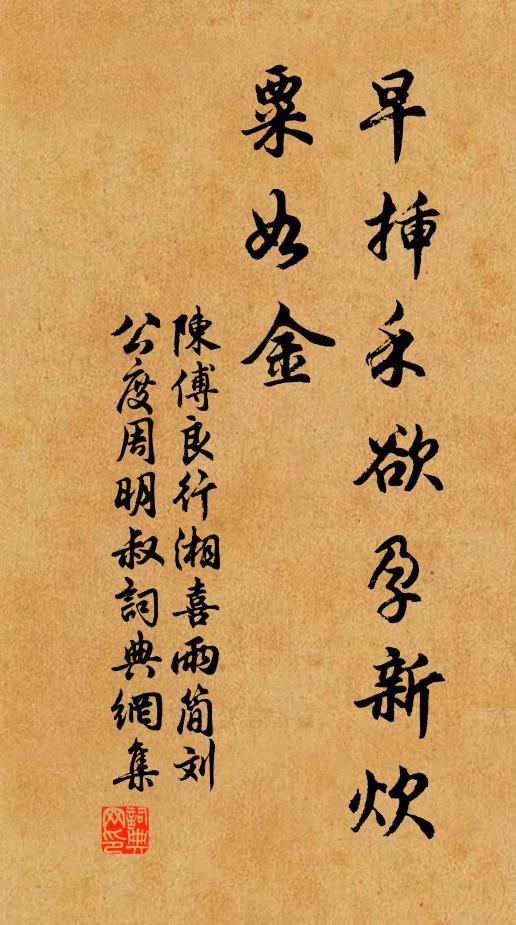 早插禾欲孕新炊
粟如金
陳傅良行湘喜雨簡刘
公度周明叔詞典網集
詞典网印